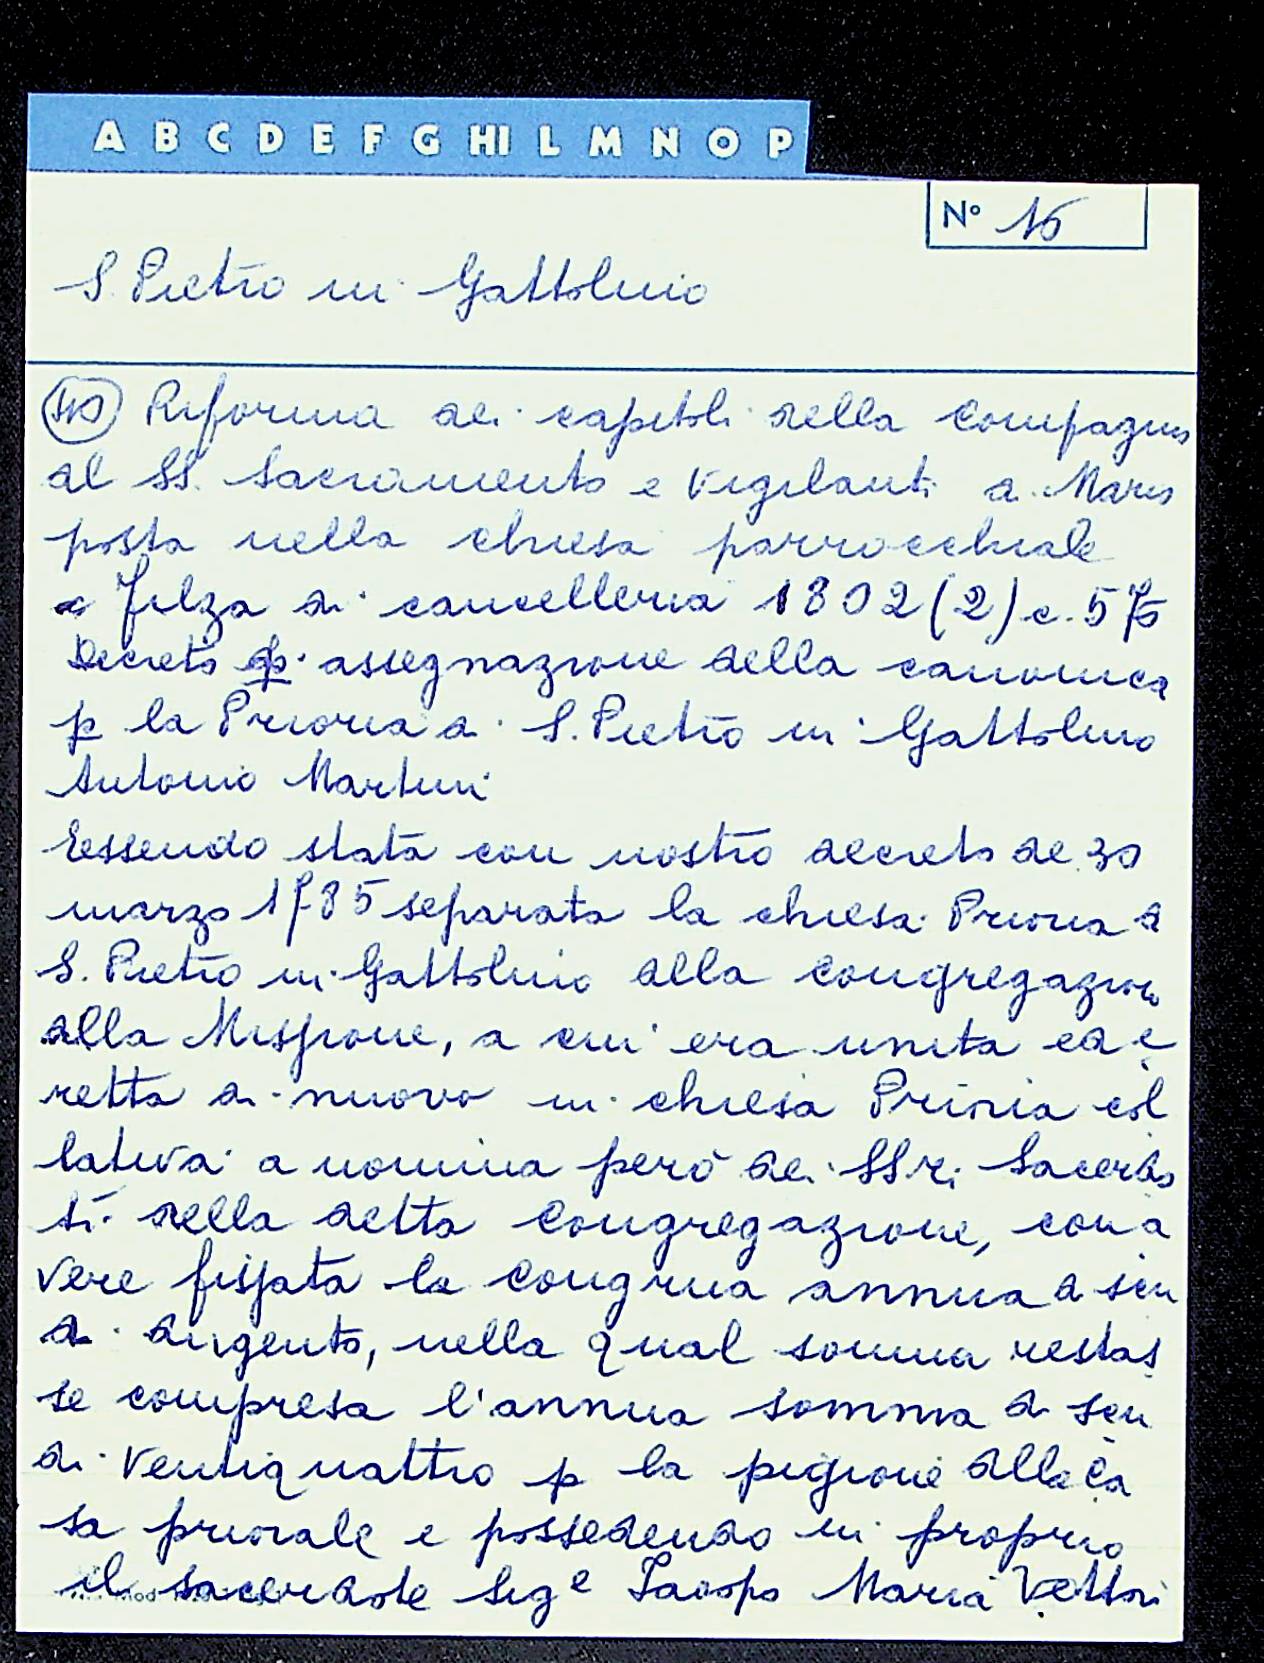 A B C D E F G HI L M N O P
N° 16
S. Pietro in Gattolino
Riforma dei capitoli della Compagnia
del SS. Sacramento e Vigilanti di Maria
posta nella chiesa parrocchiale
Filza di cancelleria 1802 (2) c. 576
Decreto di assegnazione della canonica
p la Prioria di S. Pietro in Gattolino
Antonio Martini
Essendo stata con nostro decreto de 30
marzo 1785 separata la chiesa Prioria di
S. Pietro in Gattolino dalla congregazione
della Missione, a cui era unita ed e
retta di nuovo in chiesa Prioria col
lativa a nomina però dei SSri Sacerdo
ti della detta Congregazione, con a
vere fissata la congrua annua di scu
di argento, nella qual somma restas
se compresa l'annua somma di scu
di ventiquattro p la pigione della ca
sa priorale e possedendo in proprio
il sacerdote Sige Iacopo Maria Vettori